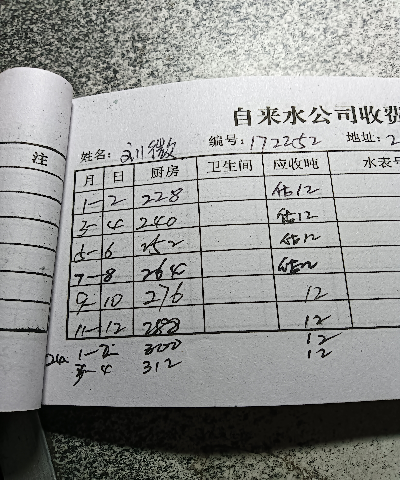 自来水公司收费
注
姓名: 刘微 编号: 172252 地址: 2
月 日 厨房 卫生间 应收吨 水表号
1-2 228 估12
3-4 240 估12
5-6 252 估12
7-8 264 估12
9-10 276 12
11-12 288 12
1-2 300 12
3-4 312 12